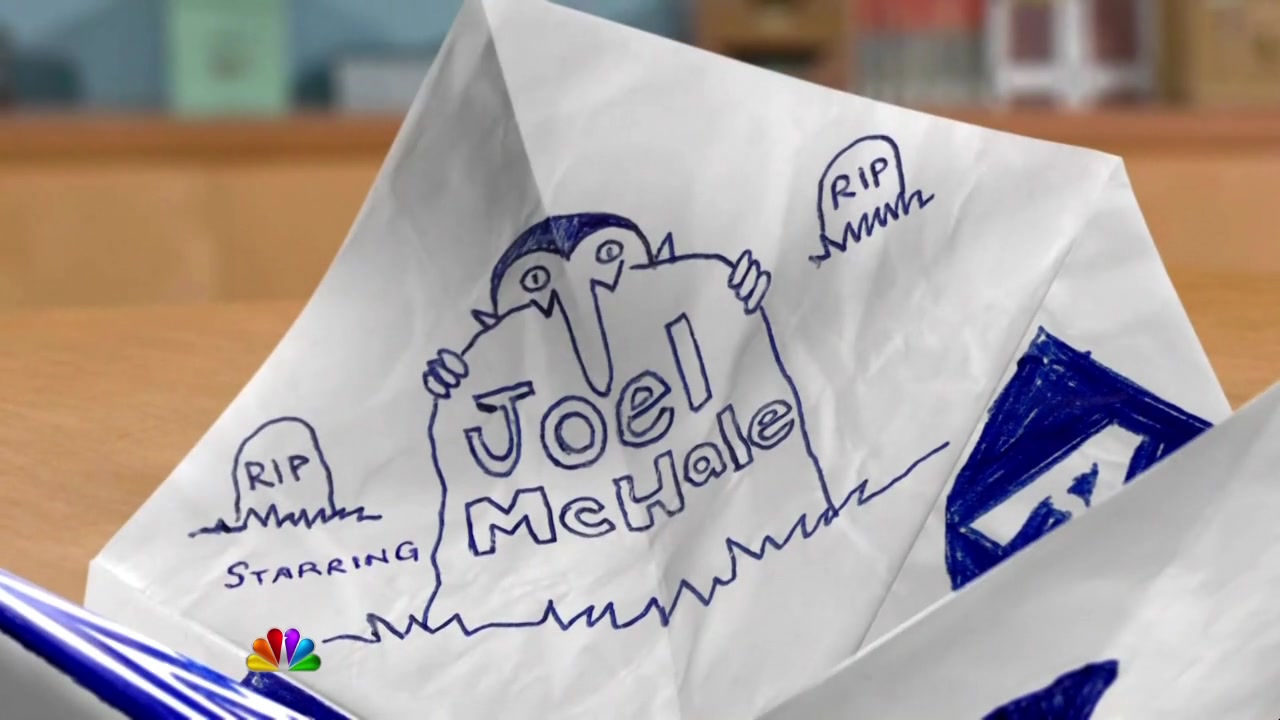 RIP
RIP
STARRING
Joel
McHale